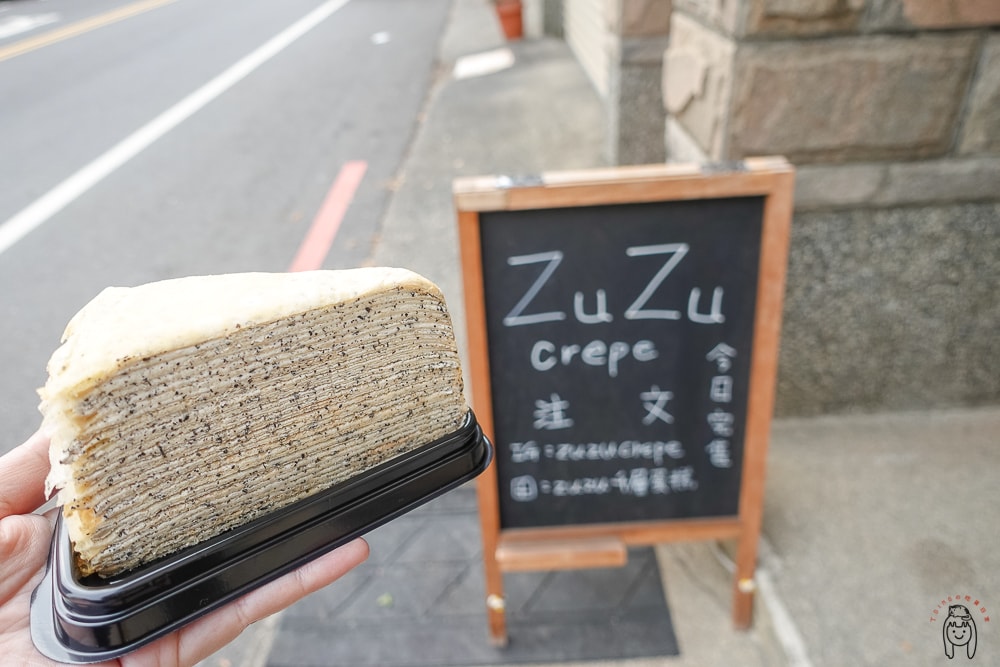 ZuZu
crepe
注 文
IG：zuzucrepe
FB：zuzu千層蛋糕
今日完售